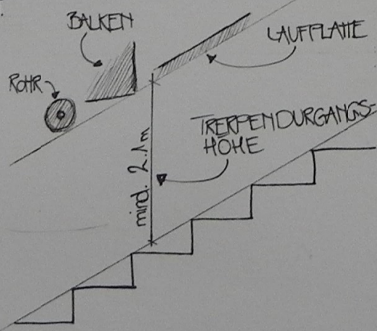 BALKEN
LAUFPLATTE
ROHR
TREPPENDURGANGS-
HÖHE
mind. 2.1m